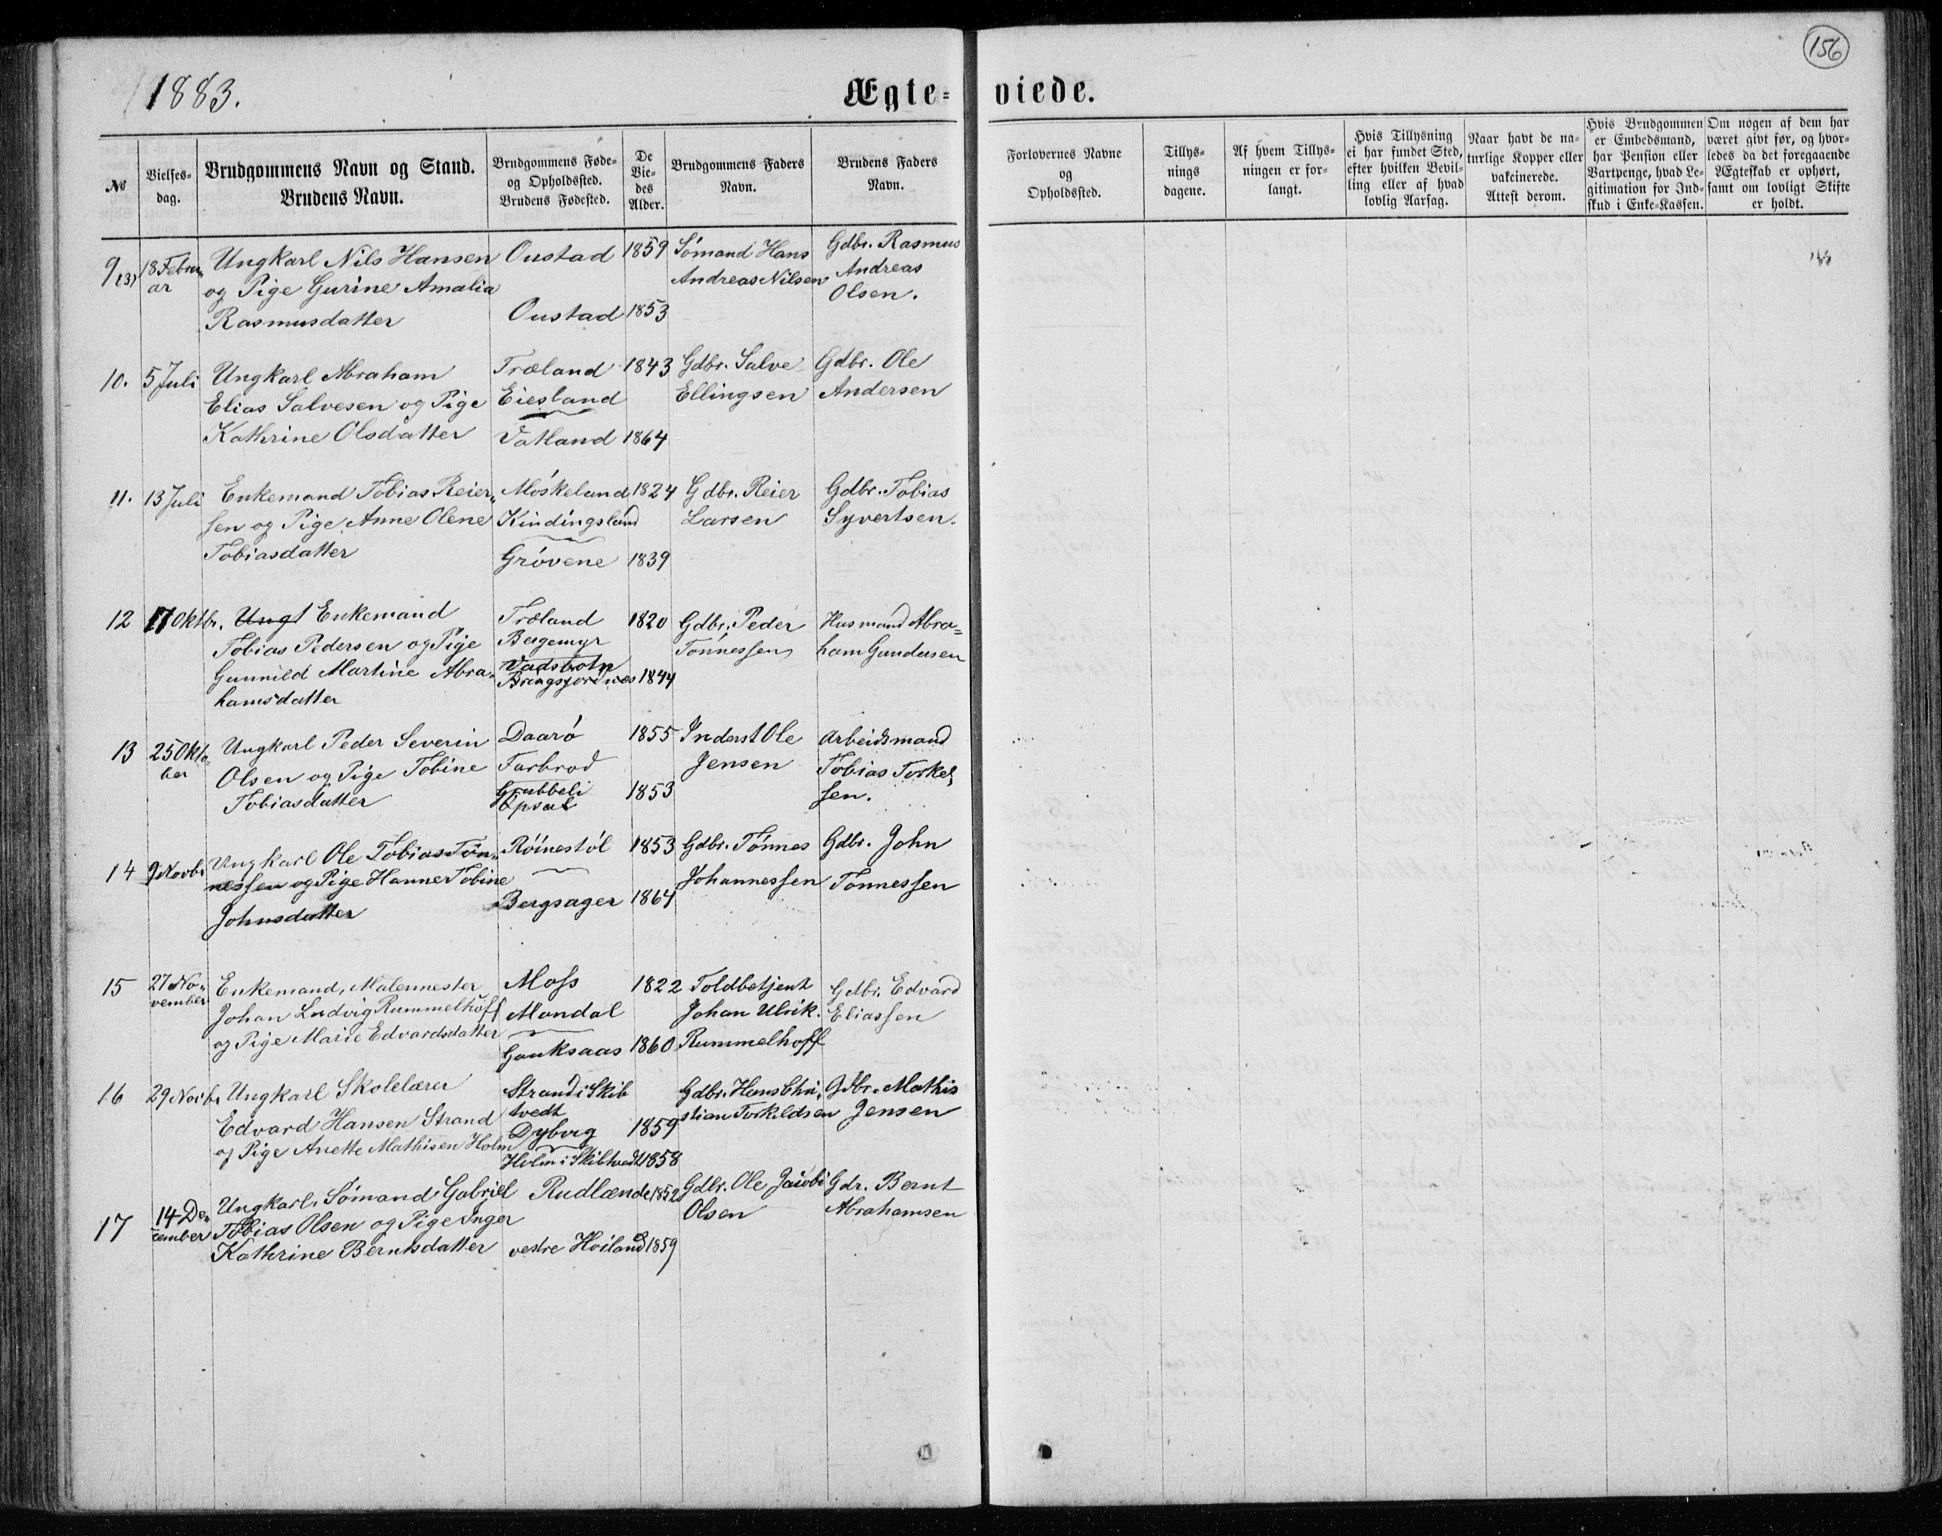 156
1883.
Ægte-viede.
№
Vielses-
dag.
Brudgommens Navn og Stand.
Brudens Navn.
Brudgommens Føde-
og Opholdssted.
Brudens Fødested.
De
Vie-
des
Alder.
Brudgommens Faders
Navn.
Brudens Faders
Navn.
Forlovernes Navne
og
Opholdssted.
Tillys-
nings
dagene.
Af hvem Tillys-
ningen er for-
langt.
Hvis Tillysning
ei har fundet Sted,
efter hvilken Bevil-
ling eller af hvad
lovlig Aarsag.
Naar havt de na-
turlige Kopper eller
vakcinerede.
Attest derom.
Hvis Brudgommen
er Embedsmand,
har Pension eller
Vartpenge, hvad Le-
gitimation for Ind-
skud i Enke-Kassen.
Om nogen af dem har
været givt før, og hvor-
ledes da det foregaaende
Ægteskab er ophørt,
samt om lovligt Skifte
er holdt.
9 (3) 18 Febru-
ar
Ungkarl Nils Hansen
og Pige Gurine Amalia
Rasmusdatter
Oustad 1859
Oustad 1853
Sómand Hans
Andreas Nilsen
Gdbr. Rasmus
Andreas
Olsen.
10. 5 Juli
Ungkarl Abraham
Elias Salvesen og Pige
Kathrine Olsdatter
Træland 1843
Eiesland
Vatland 1864
Gdbr. Salve
Ellingsen
Gdbr. Ole
Andersen
11. 13 Juli
Enkemand Tobias Reier-
sen og Pige Anne Olene
Tobiasdatter
Móskeland 1824
Kindingsland
Gróvene 1839
Gdbr. Reier
Larsen
Gdbr. Tobias
Syvertsen.
12 17 Oktbr.
Enkemand
Tobias Pedersen og Pige
Gunnild Martine Abra-
hamsdatter
Træland 1820
Bergemyr
Vadsbotn
Bringsjordnes 1844
Gdbr. Peder
Tónnessen
Husmand Abra-
ham Gundersen
13 25 Okto-
ber
Ungkarl Peder Severin
Olsen og Pige Tobine
Tobiasdatter
Daaró 1855
Farbrod
Grubbeli
Opsal 1853
Inderst Ole
Jensen
Arbeidsmand
Tobias Torkel-
sen.
14 9 Novbr
Ungkarl Ole Tobias Tón-
nessen og Pige Hanne Tobine
Johnsdatter
Róinestól 1853
Bergsager 1864
Gdbr. Tónnes
Johannessen
Gdbr. John
Tónnessen
15 27 No-
vember
Enkemand, Malermester
Johan Ludvig Rummelhoff
og Pige Marie Edvardsdatter
Moss 1822
Mandal
Gauksaas 1860
Toldbetjent
Johan Ulrik
Rummelhoff
Gdbr. Edvard
Eliassen
16 29 Novbr
Ungkarl Skolelærer
Edvard Hansen Strand
og Pige Anette Mathisen Holm
Strand i Skib
tvedt
Dyborg 1859
Holm i Skibtvedt 1858
Gdbr. Hans Chri-
stian Torkildsen
Gdbr. Mathis
Jensen
17 14 De-
cember
Ungkarl, Sómand Gabriel
Tobias Olsen og Pige Inger
Kathrine Berntsdatter
Rudlænde 1852
vestre Hóiland 1859
Gdbr. Ole Jacob
Olsen
Gdr. Bernt
Abrahamsen